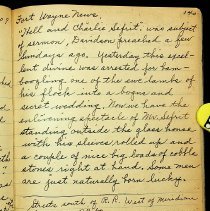 Fort Wayne News. 140
"Hell and Charlie Sefrit" was subject
of sermon, Davidson preached a few
Sundays ago. Yesterday this spell-
divine was arrested for ham-
boozling one of the ewe lambs of
his flock into a bogus and
secret wedding. Now we have the
enlivening spectacle of Mr. Sefrit
standing outside the glass house
with his sleeves rolled up and
a couple of nice big loads of cobble
stones right at hand. Some men
are just naturally born lucky.
Streets south of R.R. West of meridian